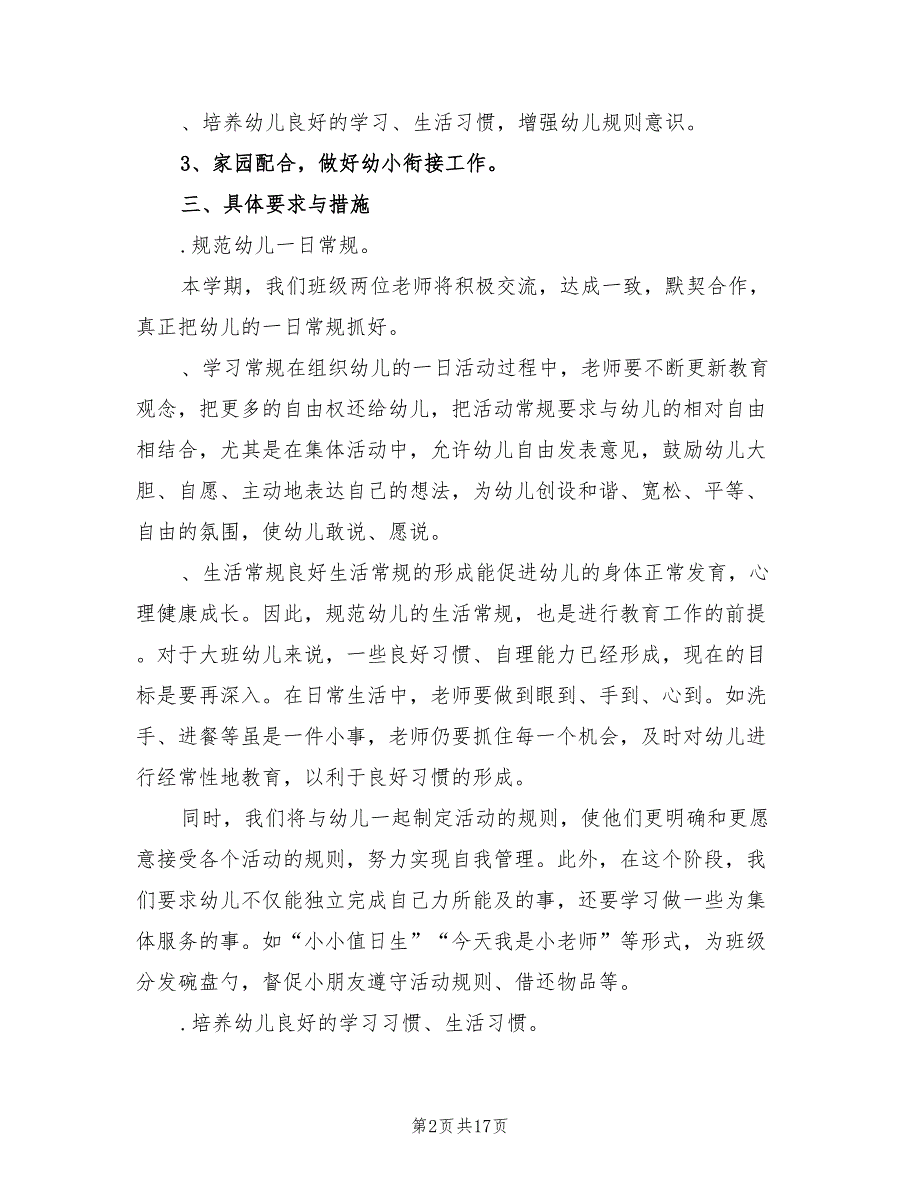 、培养幼儿良好的学习、生活习惯，增强幼儿规则意识。
3、家园配合，做好幼小衔接工作。
三、具体要求与措施
.规范幼儿一日常规。
本学期，我们班级两位老师将积极交流，达成一致，默契合作，
真正把幼儿的一日常规抓好。
、学习常规在组织幼儿的一日活动过程中，老师要不断更新教育
观念，把更多的自由权还给幼儿，把活动常规要求与幼儿的相对自由
相结合，尤其是在集体活动中，允许幼儿自由发表意见，鼓励幼儿大
胆、自愿、主动地表达自己的想法，为幼儿创设和谐、宽松、平等、
自由的氛围，使幼儿敢说、愿说。
、生活常规良好生活常规的形成能促进幼儿的身体正常发育，心
理健康成长。因此，规范幼儿的生活常规，也是进行教育工作的前提
。对于大班幼儿来说，一些良好习惯、自理能力已经形成，现在的目
标是要再深入。在日常生活中，老师要做到眼到、手到、心到。如洗
手、进餐等虽是一件小事，老师仍要抓住每一个机会，及时对幼儿进
行经常性地教育，以利于良好习惯的形成。
同时，我们将与幼儿一起制定活动的规则，使他们更明确和更愿
意接受各个活动的规则，努力实现自我管理。此外，在这个阶段，我
们要求幼儿不仅能独立完成自己力所能及的事，还要学习做一些为集
体服务的事。如“小小值日生”“今天我是小老师”等形式，为班级
分发碗盘勺，督促小朋友遵守活动规则、借还物品等。
.培养幼儿良好的学习习惯、生活习惯。
第2页共17页